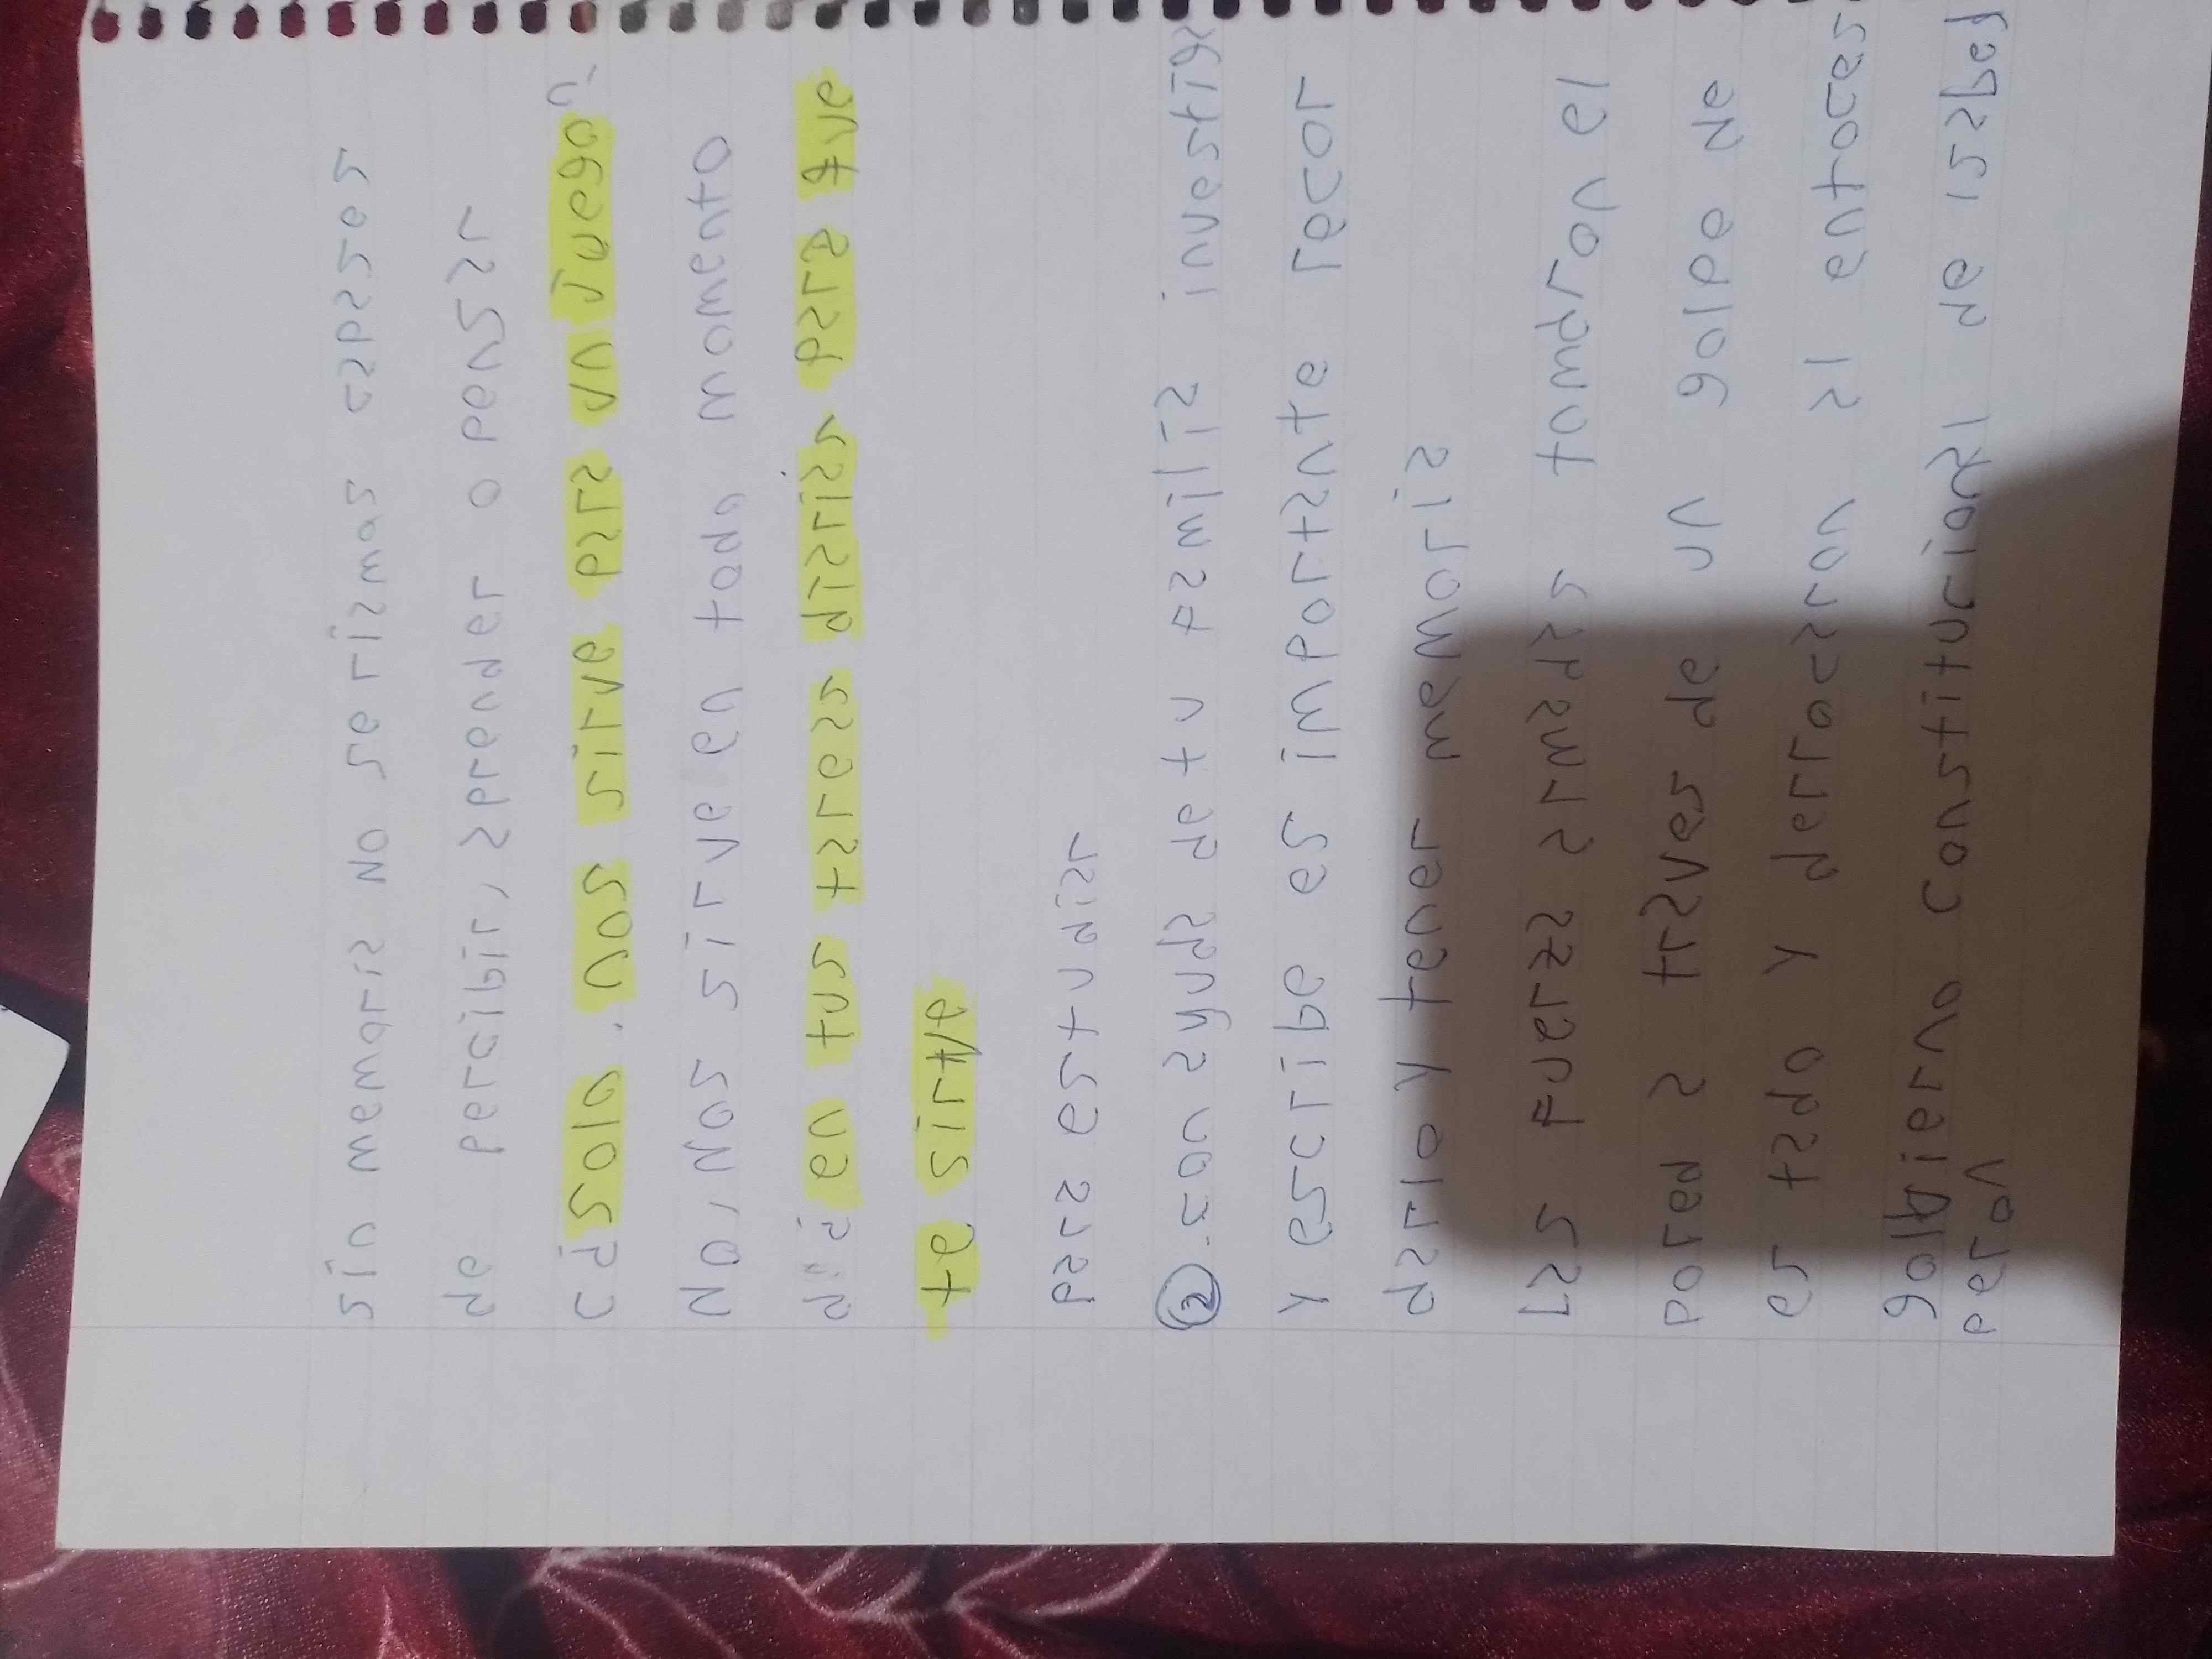 sin memoria No seríamos capases
de percibir, aprender o pensar
C¿ solo, nos sirve para un juego?
No, Nos sirve en todo momento
di¿ en tus tareas diarias para que
te sirve
para estudiar
② con ayuda de tu familia investiga
y escribe es importante recor
darlo y tener memoria
las fuerzas armadas tomaron el
poder a traves de un golpe de
estado y derrocaron a la entonces
gobierno constitucional de isabel
peron